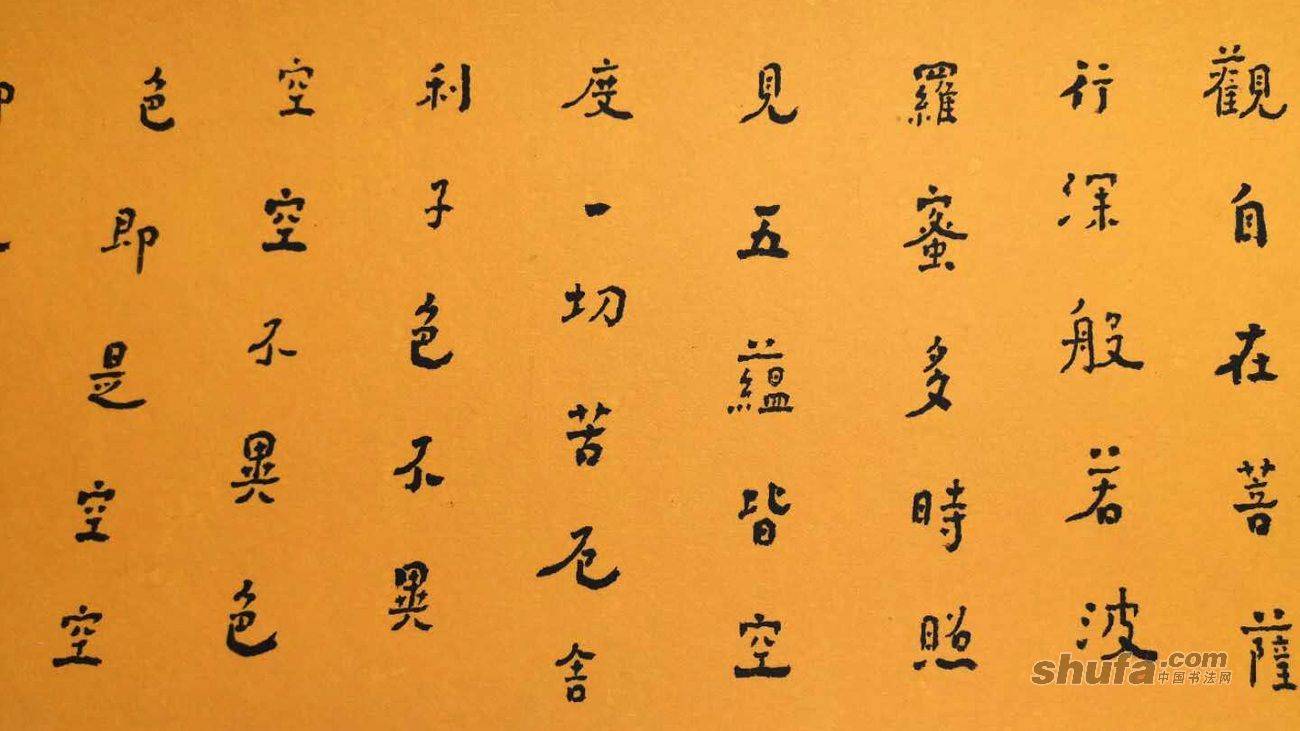 觀自在菩薩
行深般若波
羅蜜多時照
見五蘊皆空
度一切苦厄舍
利子色不異
空空不異色
色即是空空
shufa.com
中国书法网